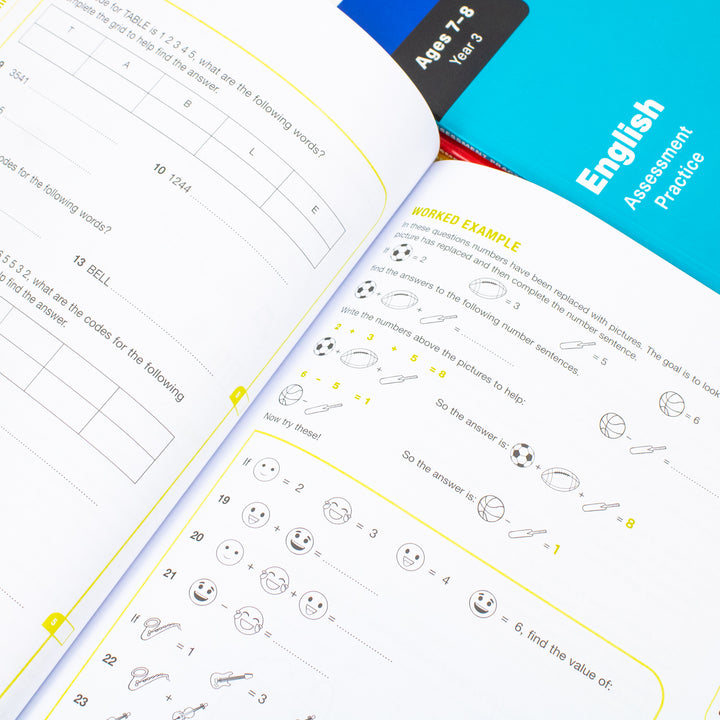 de for TABLE is 1 2 3 4 5, what are the following words?
mplete the grid to help find the answer.
T A B L E
3541
10 1244
odes for the following words?
13 BELL
6 5 5 3 2, what are the codes for the following
lp find the answer.
5
Ages 7–8
Year 3
English
Assessment
Practice
WORKED EXAMPLE
In these questions numbers have been replaced with pictures. The goal is to look
picture has replaced and then complete the number sentence.
If = 2 = 3 = 5 = 6
find the answers to the following number sentences.
+ + =
− =
Write the numbers above the pictures to help:
2 + 3 + 5 = 8
+ +
So the answer is: + + = 8
6 − 5 = 1
−
So the answer is: − = 1
Now try these!
If = 2 = 3 = 4 = 6, find the value of:
19 + =
20 + + =
21 − =
If = 1 = 3
22 +
23